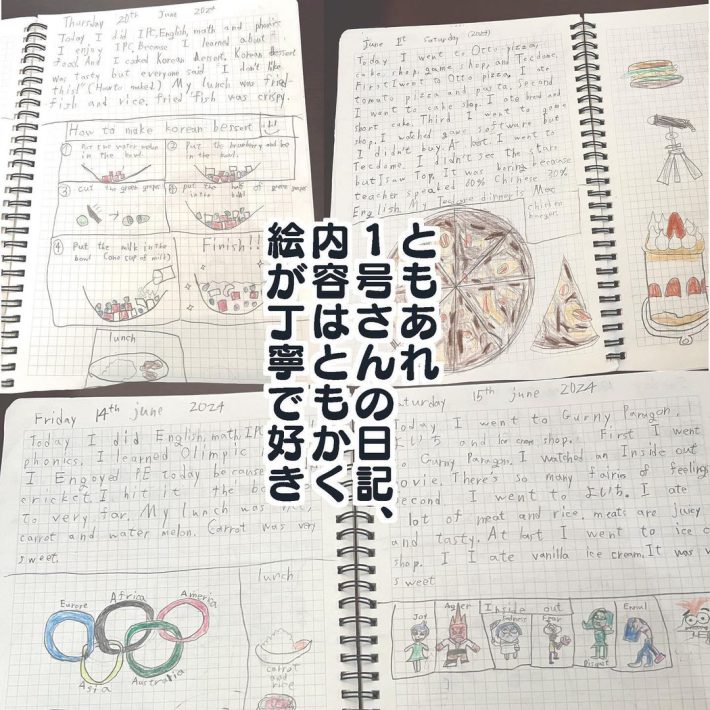 Thursday 20th June 2024
Today I did IPC, English, math and phonics
I enjoy IPC, Because I learned about
food. And I coked Korean dessert. Korean dessert
was tasty but everyone said "I don't like
this!" (How to make) My lunch was fried
fish and rice. fried fish was crispy.
How to make korean dessert
① Put two water melon
in the bowl.
② Put the brawberry and ice
in the bowl
③ Cut the green grapes
④ put the half of green grapes
in the bowl
④ Put the milk in the
bowl (one cup of milk)
Finish!!
lunch
june 1st Saturday (2024)
Today I went to Otto pizza,
cake shop, game shop, and Tecdome.
First I went to Otto pizza, I ate
tomato pizza and pasta. Second
I want to cake shop. I ate bread and
short cake. Third I want to game
shop. I watched game software but
I didn't buy. At last I went to
Tecdome. I didn't see the stars
but I saw Top. It was boring because
teacher speaked 80% Chinese 20%
English. My Tecdome dinner is Mac
chicken
burger.
ともあれ
1号さんの日記、
内容はともかく
絵が丁寧で好き
Friday 14th june 2024
Today I did English, math, IPC
phonics. I learned Olympic
I Engoyed PE today because
cricket I hit it the
to very far. My lunch was
carrot and water melon. Carrot was very
sweet.
Europe
Africa
America
Asia
Australia
lunch
carrot
and
rice
Saturday 15th june 2024
Today I went to Gurny Paragon,
よいち and ice cream shop. First I went
Gurny Paragon. I watched an Inside out
movie. There's so many fairim of feelings
second. I went to よいち. I ate
lot of meat and rice. meats are juicy
and tasty. At last I went to ice c
shop. I I ate vanilla ice cream. It was v
sweet
Inside out
Joy
Anger
Sadness
Fear
Disgust
Ennui